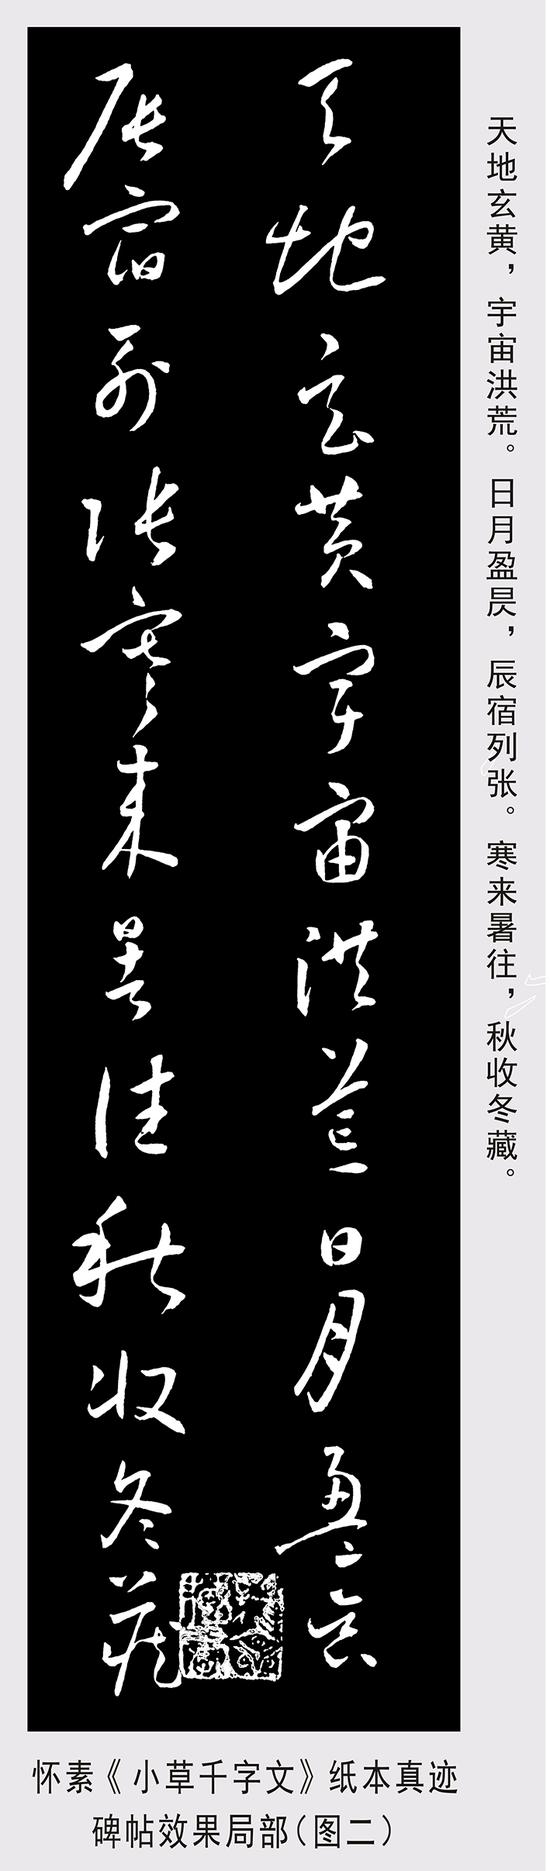 天地玄黄，宇宙洪荒。日月盈昃，辰宿列张。寒来暑往，秋收冬藏。
天地玄黄宇宙洪荒日月盈昃
辰宿列张寒来暑往秋收冬藏
怀素《小草千字文》纸本真迹
碑帖效果局部（图二）